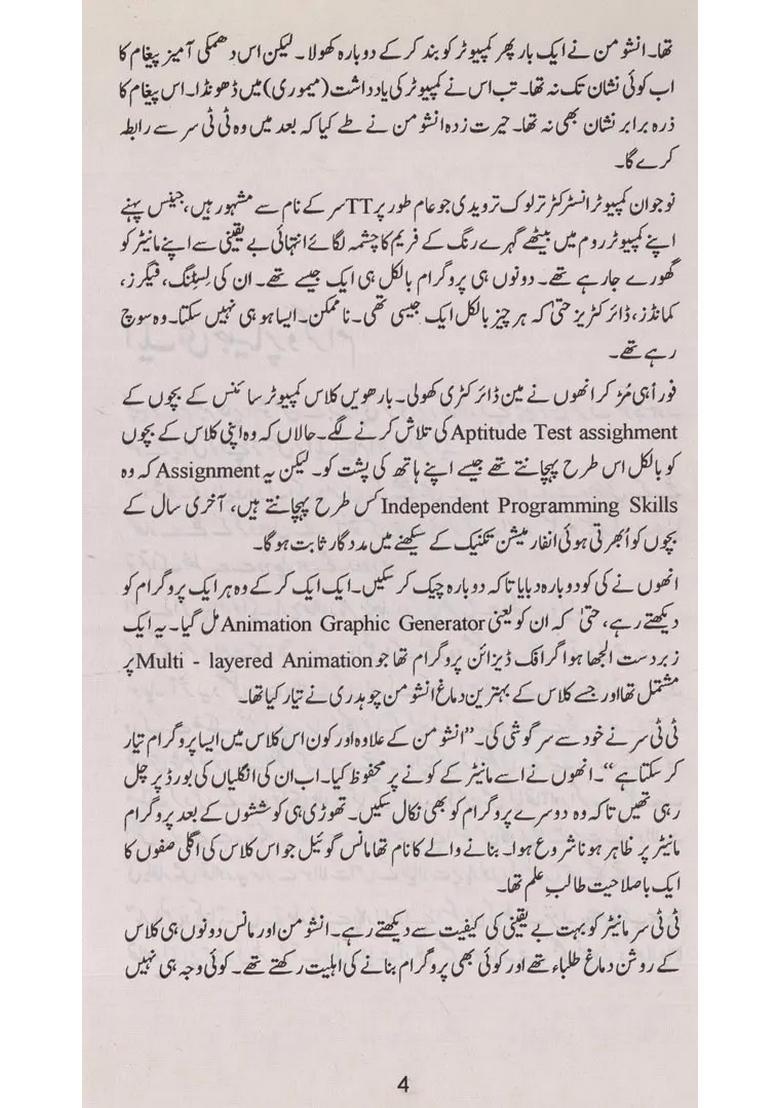 تھا۔ انشومن نے ایک بار پھر کمپیوٹر کو بند کر کے دوبارہ کھولا۔ لیکن اس دھمکی آمیز پیغام کا
اب کوئی نشان تک نہ تھا۔ تب اس نے کمپیوٹر کی یادداشت (میموری) میں ڈھونڈا۔ اس پیغام کا
ذرہ برابر نشان بھی نہ تھا۔ حیرت زدہ انشومن نے طے کیا کہ بعد میں وہ ٹی ٹی سر سے رابطہ
کرے گا۔
نوجوان کمپیوٹر انسٹرکٹر ترلوک ترویدی جو عام طور پر TT سر کے نام سے مشہور ہیں، جینس پہنے
اپنے کمپیوٹر روم میں بیٹھے گہرے رنگ کے فریم کا چشمہ لگائے انتہائی بے یقینی سے اپنے مانیٹر کو
گھورے جارہے تھے۔ دونوں ہی پروگرام بالکل ہی ایک جیسے تھے۔ ان کی لِسٹنگ، فیگرز،
کمانڈز، ڈائرکٹریز حتیٰ کہ ہر چیز بالکل ایک جیسی تھی۔ ناممکن۔ ایسا ہو ہی نہیں سکتا۔ وہ سوچ
رہے تھے۔
فوراً ہی مُڑ کر انھوں نے مین ڈائرکٹری کھولی۔ بارھویں کلاس کمپیوٹر سائنس کے بچوں کے
Aptitude Test assighment کی تلاش کرنے لگے۔ حالاں کہ وہ اپنی کلاس کے بچوں
کو بالکل اس طرح پہچانتے تھے جیسے اپنے ہاتھ کی پشت کو۔ لیکن یہ Assignment کہ وہ
Independent Programming Skills کس طرح پہچانتے ہیں، آخری سال کے
بچوں کو اُبھرتی ہوئی انفارمیشن تکنیک کے سیکھنے میں مددگار ثابت ہوگا۔
انھوں نے کی کو دوبارہ دبایا تاکہ دوبارہ چیک کر سکیں۔ ایک ایک کر کے وہ ہر ایک پروگرام کو
دیکھتے رہے، حتیٰ کہ ان کو یعنی Animation Graphic Generator مل گیا۔ یہ ایک
زبردست الجھا ہوا گرافک ڈیزائن پروگرام تھا جو Multi - layered Animation پر
مشتمل تھا اور جسے کلاس کے بہترین دماغ انشومن چوہدری نے تیار کیا تھا۔
ٹی ٹی سر نے خود سے سرگوشی کی۔ ”انشومن کے علاوہ اور کون اس کلاس میں ایسا پروگرام تیار
کر سکتا ہے“۔ انھوں نے اسے مانیٹر کے کونے پر محفوظ کیا۔ اب ان کی انگلیاں کی بورڈ پر چل
رہی تھیں تاکہ وہ دوسرے پروگرام کو بھی نکال سکیں۔ تھوڑی ہی کوششوں کے بعد پروگرام
مانیٹر پر ظاہر ہونا شروع ہوا۔ بنانے والے کا نام تھا مانس گوئیل جو اس کلاس کی اگلی صفوں کا
ایک باصلاحیت طالبِ علم تھا۔
ٹی ٹی سر مانیٹر کو بہت بے یقینی کی کیفیت سے دیکھتے رہے۔ انشومن اور مانس دونوں ہی کلاس
کے روشن دماغ طلباء تھے اور کوئی بھی پروگرام بنانے کی اہلیت رکھتے تھے۔ کوئی وجہ ہی نہیں
4